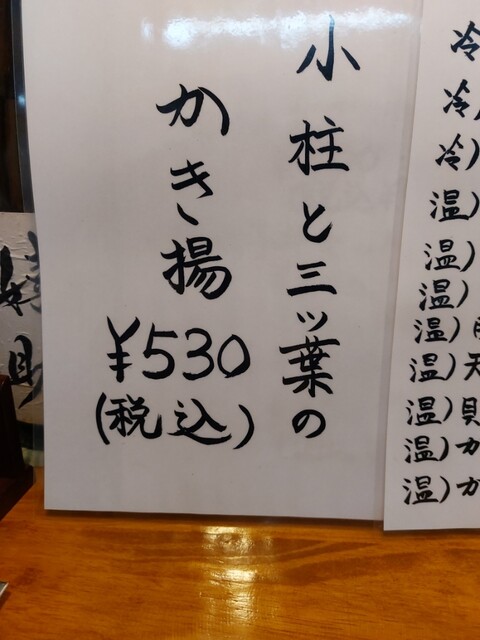 小柱と三ッ葉の
かき揚
¥530
(税込)
冷
冷)
冷)
温)
温)
温)
温)
温)天
温)貝
温)か
温)か